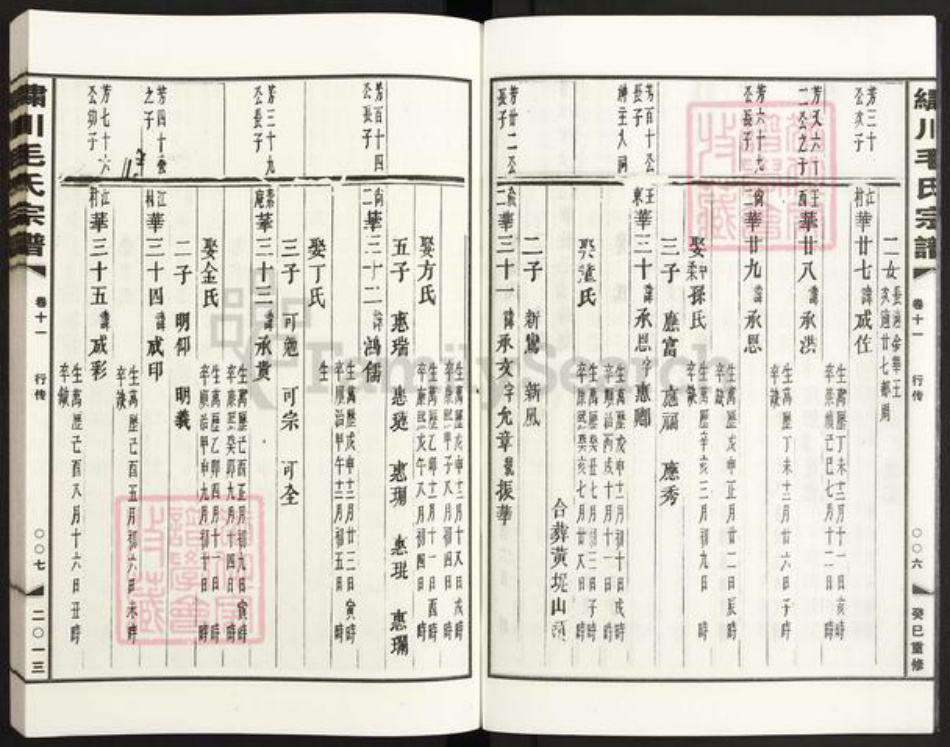 繡川毛氏宗譜
卷十一
行传
〇〇六
癸巳重修
二女
芳三十
公次子
江村
華廿七諱成位
生萬歷丁未十二月十一日亥時
卒崇禎己巳七月十二日
芳又六十
二公之子
王西
華廿八諱承洪
生萬歷丁未十二月廿六日子時
卒缺
芳六十九
公長子
華廿九諱承恩
生萬歷戊申正月廿二日辰時
娶孫氏
生萬歷辛亥三月初九日 時
卒缺
三子 應富 應福 應秀
芳百十公
長子
王東
華三十諱承恩字惠卿
生萬歷戊申十二月初十日戌時
卒順治丙戌十月十一日 時
生萬歷癸丑七月初三日子時
卒康熙癸亥七月廿又日 時
合葬黃堤山頭
二子 新鸞 新鳳
芳廿二公
長子
華三十一諱承文字允章號振華
生萬歷戊申十二月十又日戌時
卒康熙甲子又月初四日 時
娶方氏
生萬歷乙卯十二月十一日酉時
卒康熙戊午又月初四日 時
五子 惠瑞 惠璉 惠瑚 惠琨 惠瓓
芳百十四
公長子
尚二
華三十二諱鴻儒
生萬歷戊申十二月廿三日寅時
卒順治甲午十二月初五日 時
娶丁氏
生
三子 可勉 可宗 可全
芳三十九
公長子
華三十三諱承貴
生萬歷己酉正月初九日寅時
卒康熙癸卯九月十四日 時
娶金氏
生萬歷乙卯四月十一日 時
卒順治甲申九月初十日 時
二子 明仰 明義
芳四十
之子
江村
華三十四諱成印
生萬歷己酉五月初六日未時
卒缺
芳七十六
公幼子
江村
華三十五諱成彩
生萬歷己酉又月十六日丑時
卒缺
繡川毛氏宗譜
卷十一
行传
〇〇七
二〇一三
FamilySearch